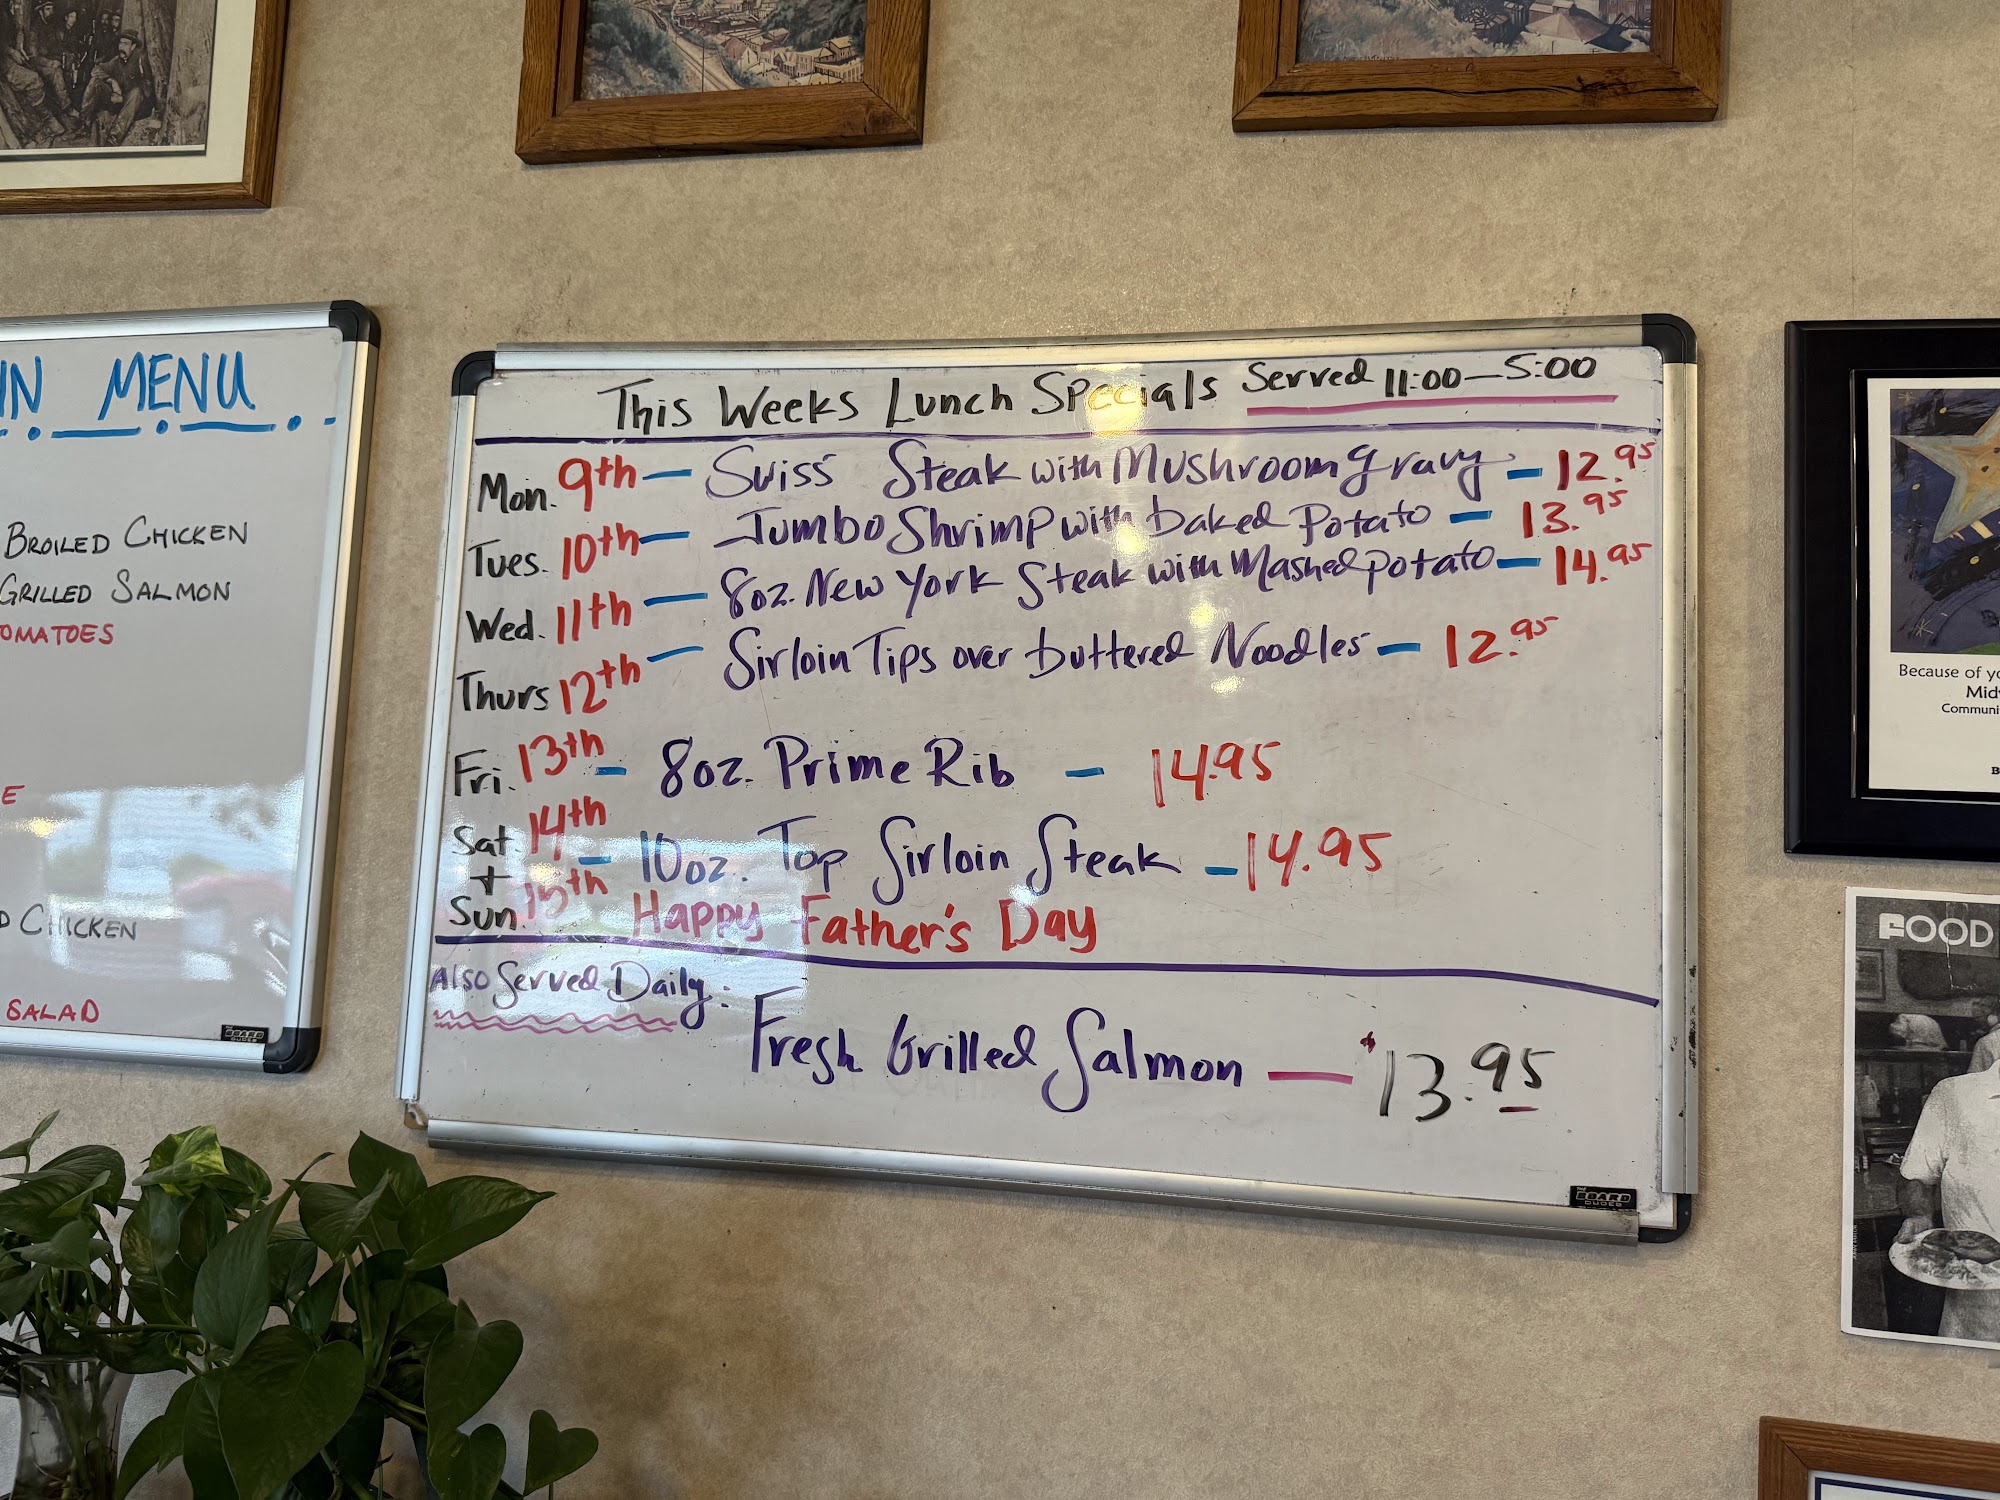 IN MENU
BROILED CHICKEN
GRILLED SALMON
OMATOES
E
D CHICKEN
SALAD
THE BOARD DUDES
This Weeks Lunch Specials Served 11:00-5:00
Mon. 9th - Swiss Steak with Mushroom gravy - 12.95
Tues. 10th - Jumbo Shrimp with baked Potato - 13.95
Wed. 11th - 8oz. New York Steak with Mashed potato - 14.95
Thurs 12th - Sirloin Tips over buttered Noodles - 12.95
Fri. 13th - 8oz. Prime Rib - 14.95
Sat 14th - 10oz. Top Sirloin Steak - 14.95
+
Sun. 15th Happy Father's Day
Also Served Daily:
Fresh Grilled Salmon - $13.95
THE BOARD DUDES
Because of yo
Midv
Communi
B
FOOD